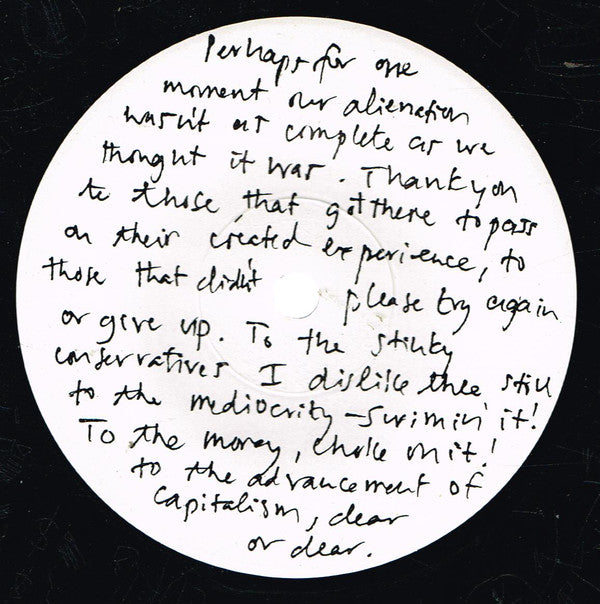 Perhaps for one
moment our alienation
wasn't as complete as we
thought it was. Thank you
to those that got there to pass
on their created experience, to
those that didn't please try again
or give up. To the stinky
conservatives I dislike thee still
to the mediocrity - swimin' it!
To the money, choke on it!
to the advancement of
capitalism, dear
or dear.